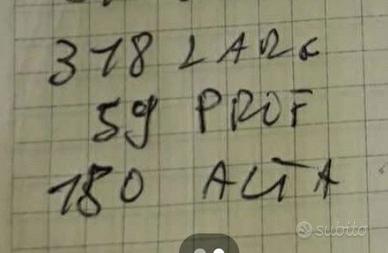 318 LARG
59 PROF
180 ALTA
subito